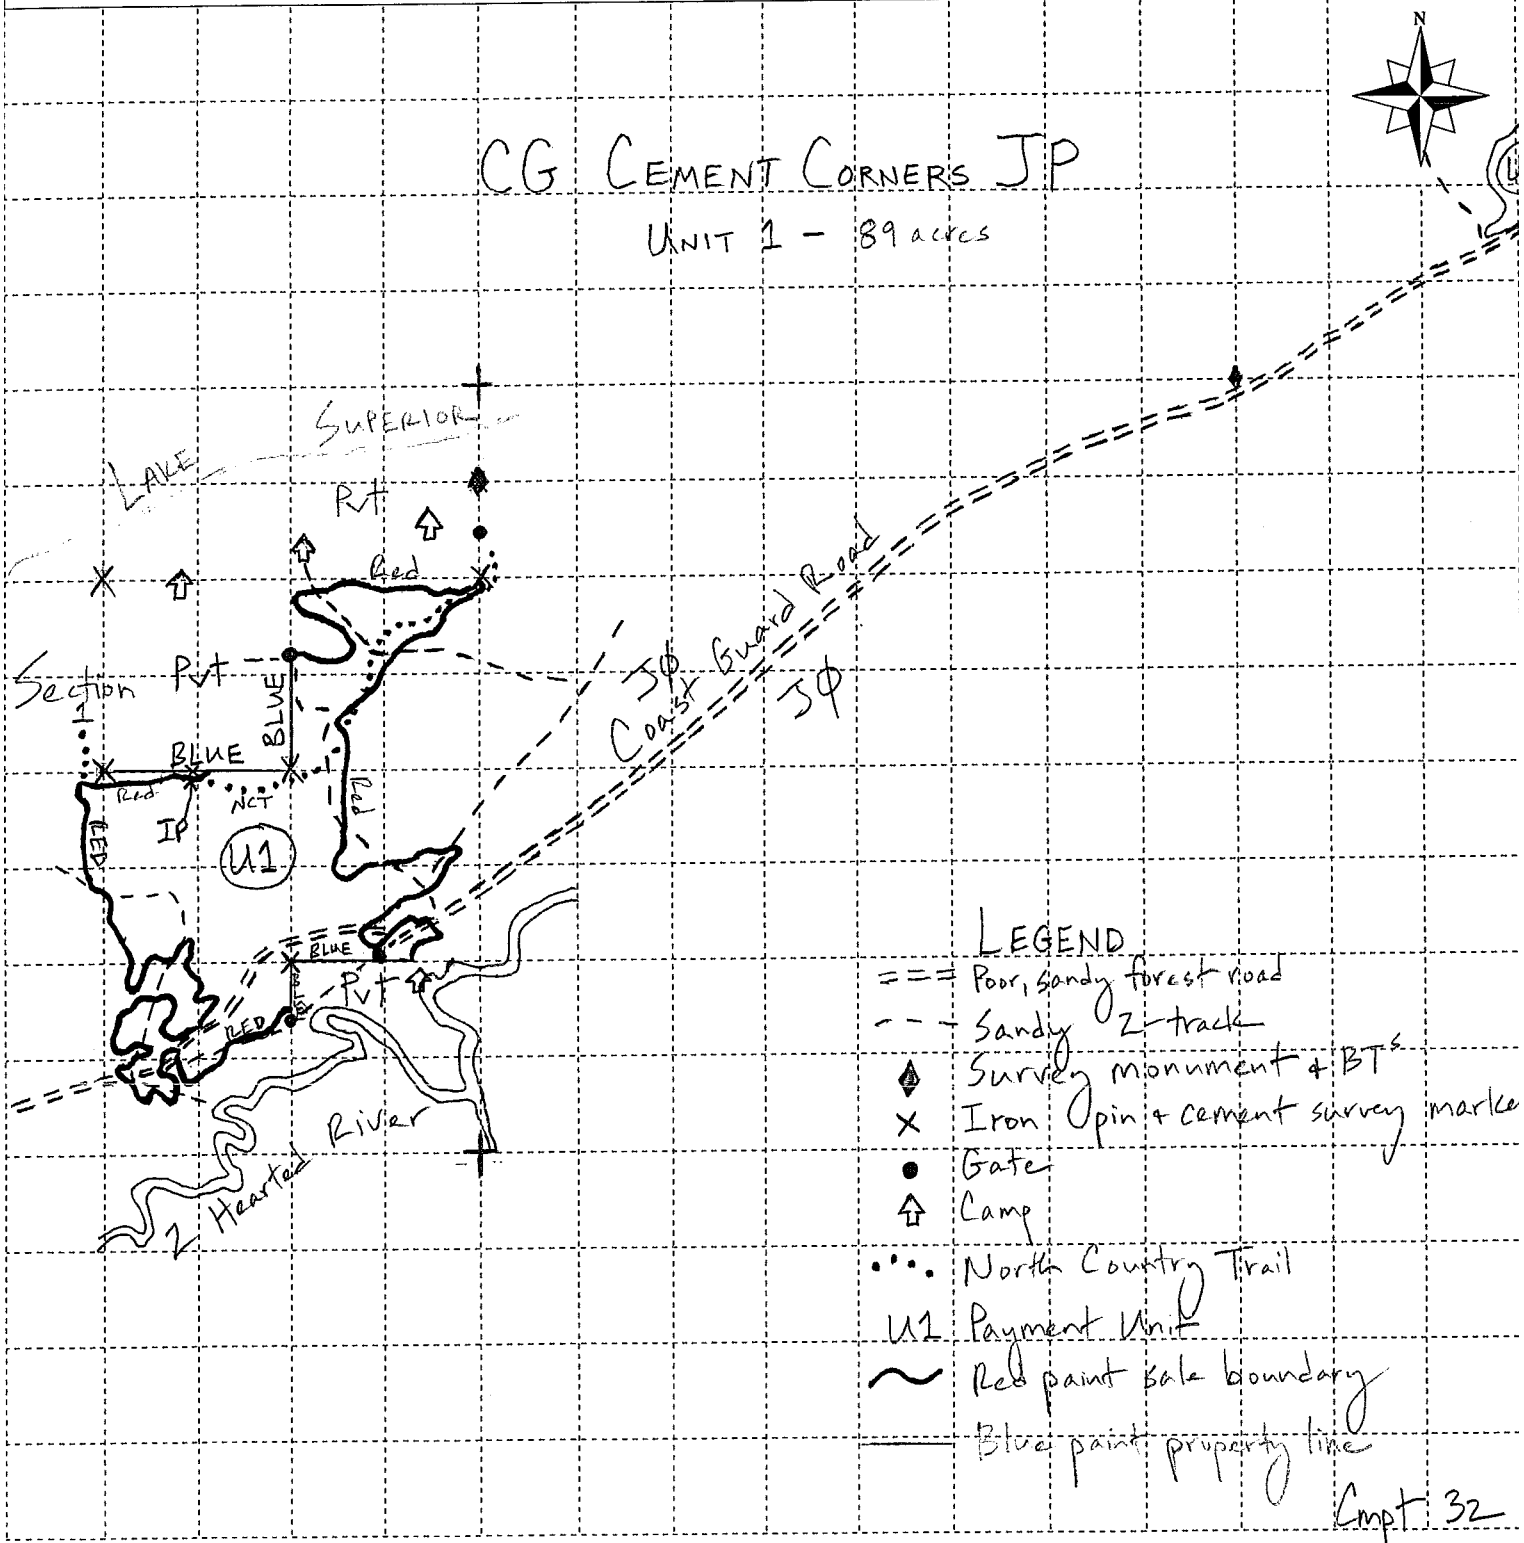 N
CG CEMENT CORNERS JP
UNIT 1 - 89 acres
LAKE SUPERIOR
Pvt
Red
Section 1
Pvt
BLUE
BLUE
Red
NCT
IP
RED
U1
Red
JØ
Coast Guard Road
JØ
BLUE
Pvt
RED
2 Hearted River
LEGEND
Poor, sandy forest road
Sandy 2-track
Survey monument & BTs
Iron pin & cement survey marke
Gate
Camp
North Country Trail
U1 Payment Unit
Red paint sale boundary
Blue paint property line
Cmpt 32